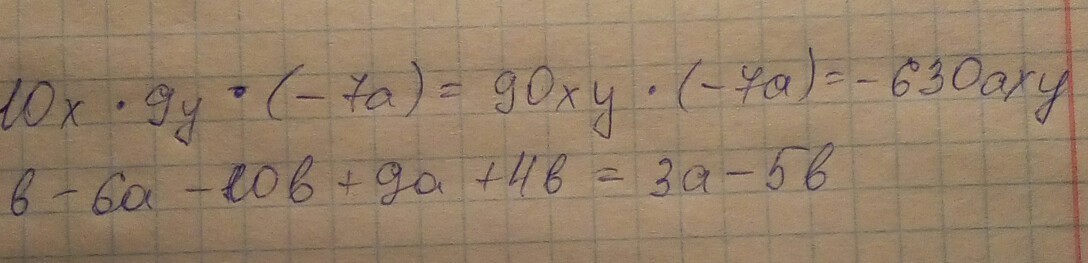 10x · 9y · (-7a) = 90xy · (-7a) = -630axy
в - 6a - 10в + 9a + 4в = 3a - 5в